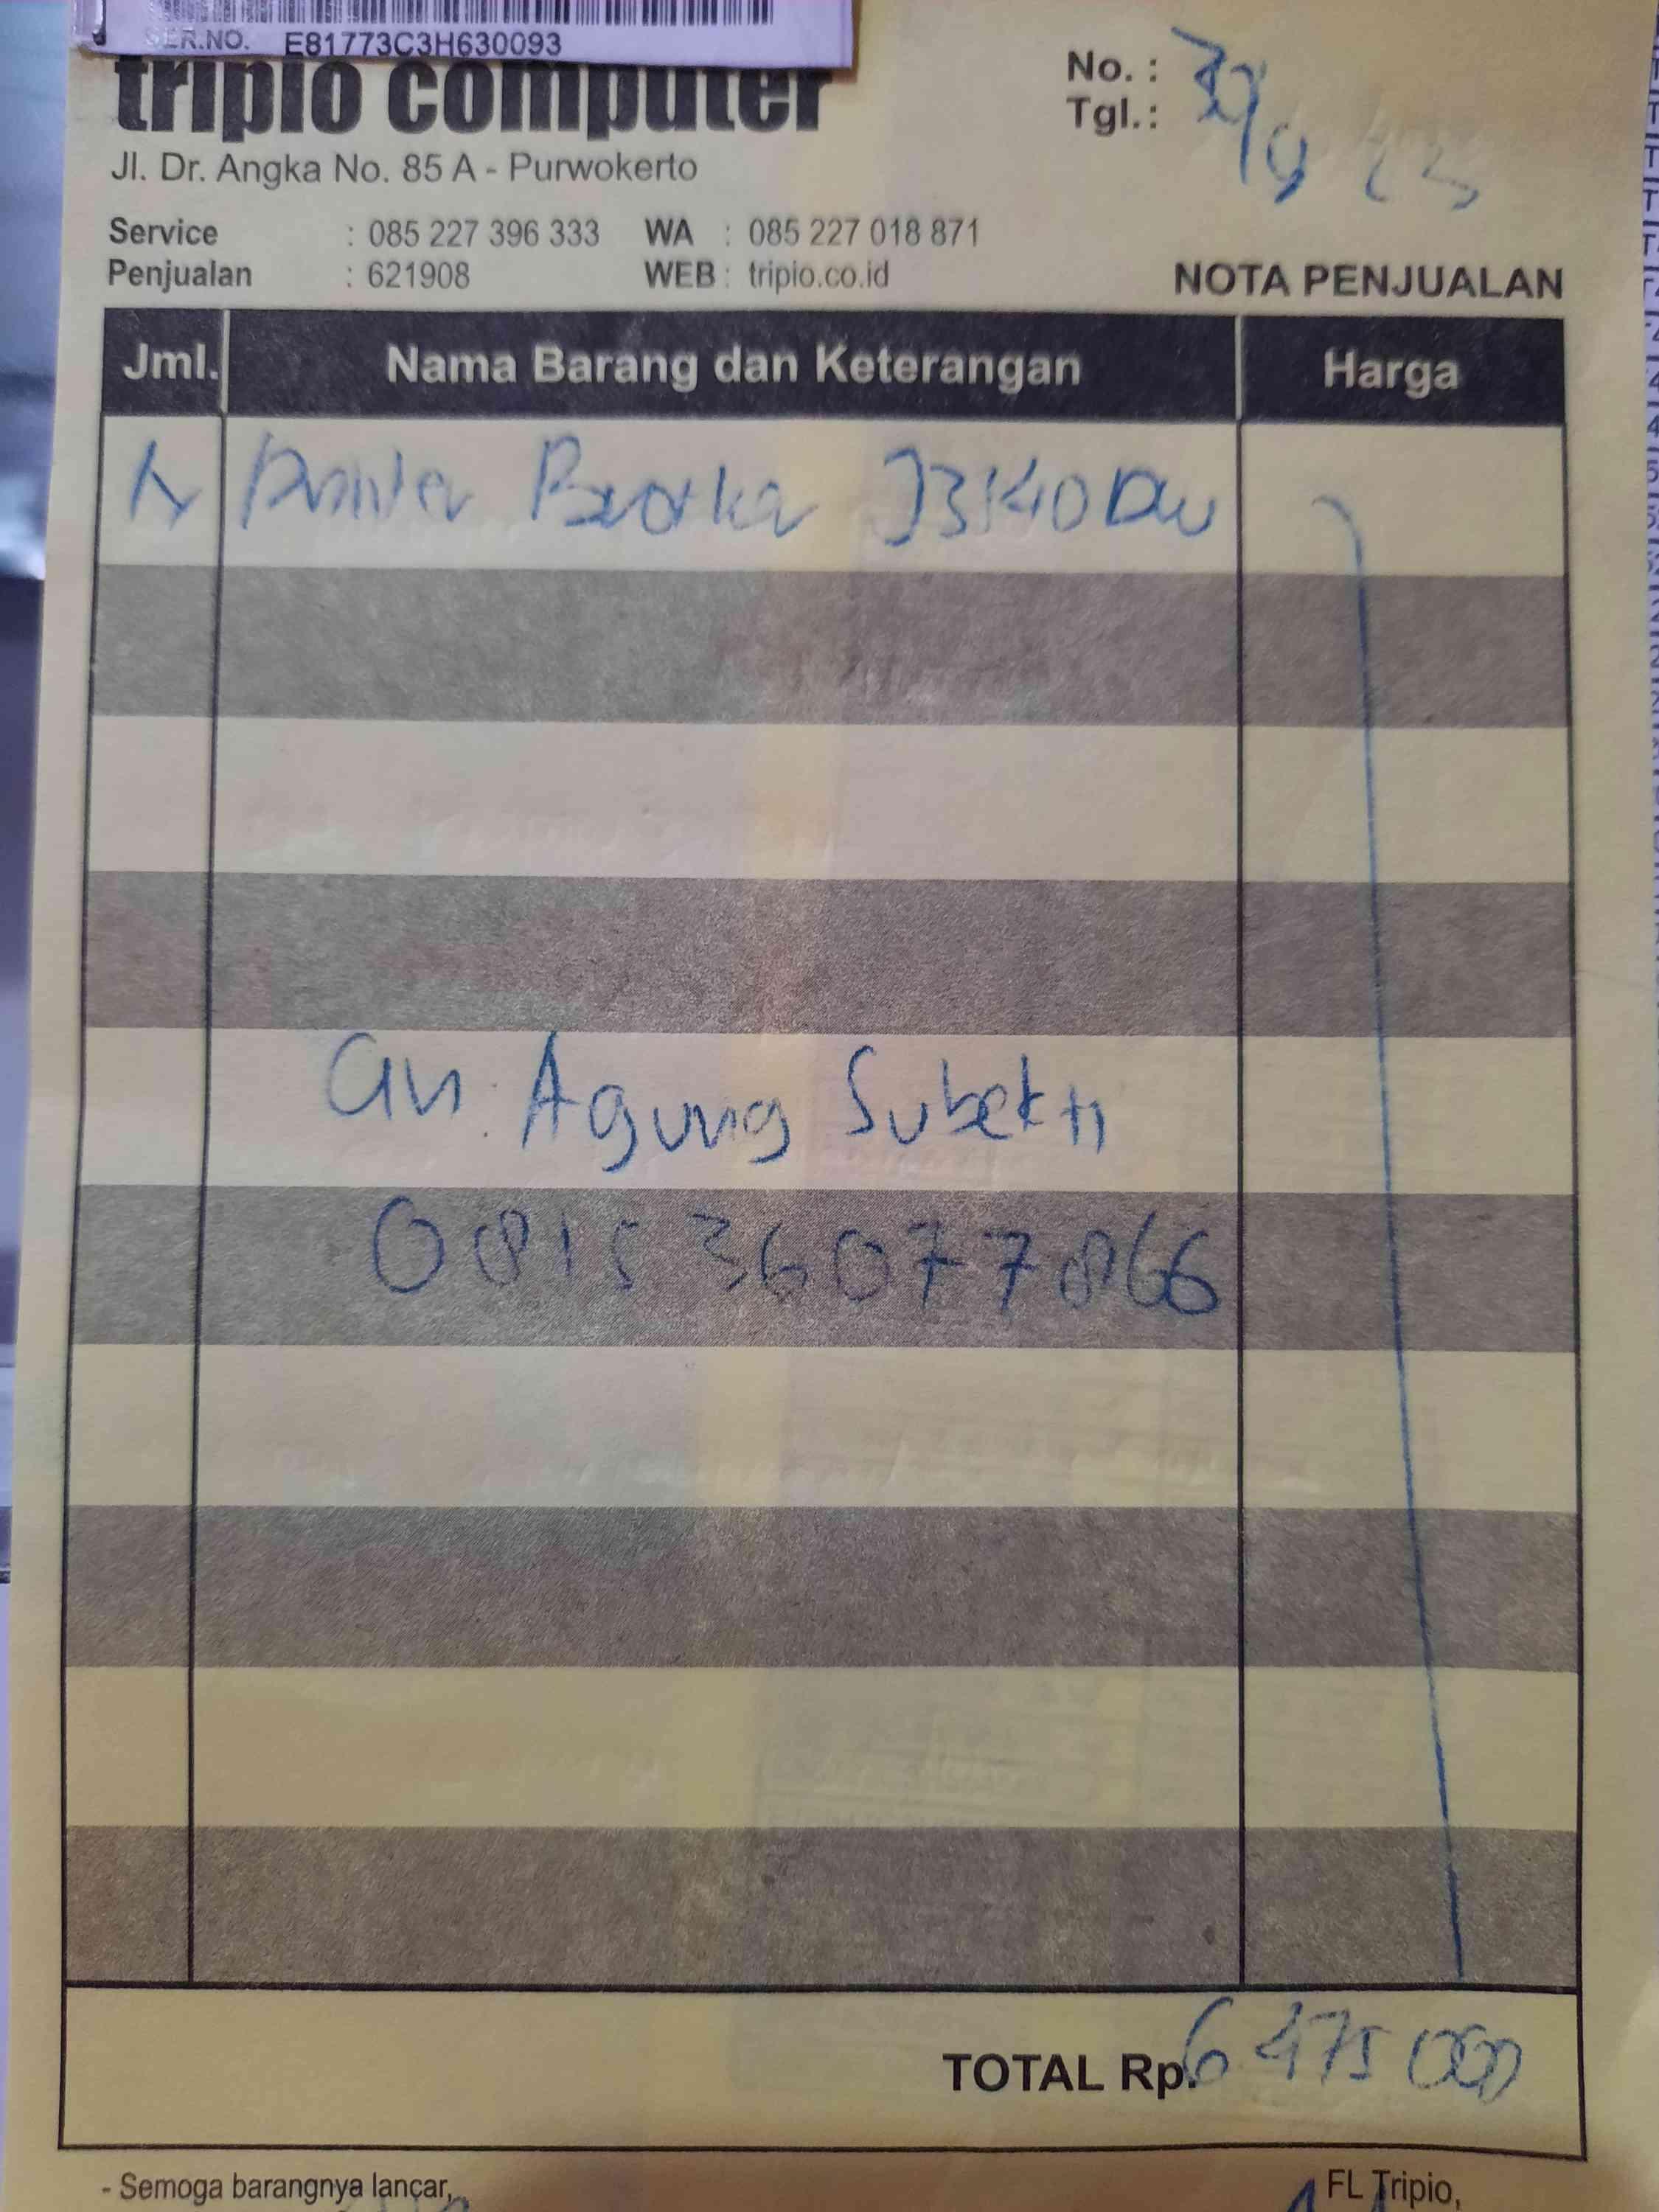 SER.NO. E81773C3H630093
tripio computer
Jl. Dr. Angka No. 85 A - Purwokerto
No. :
Tgl. : 30/9 23
Service : 085 227 396 333 WA : 085 227 018 871
Penjualan : 621908 WEB : tripio.co.id
NOTA PENJUALAN
Jml. Nama Barang dan Keterangan Harga
1 Printer Brother J3140DW
an. Agung Subekti
081536077866
TOTAL Rp. 6 475 000
- Semoga barangnya lancar,
FL Tripio,